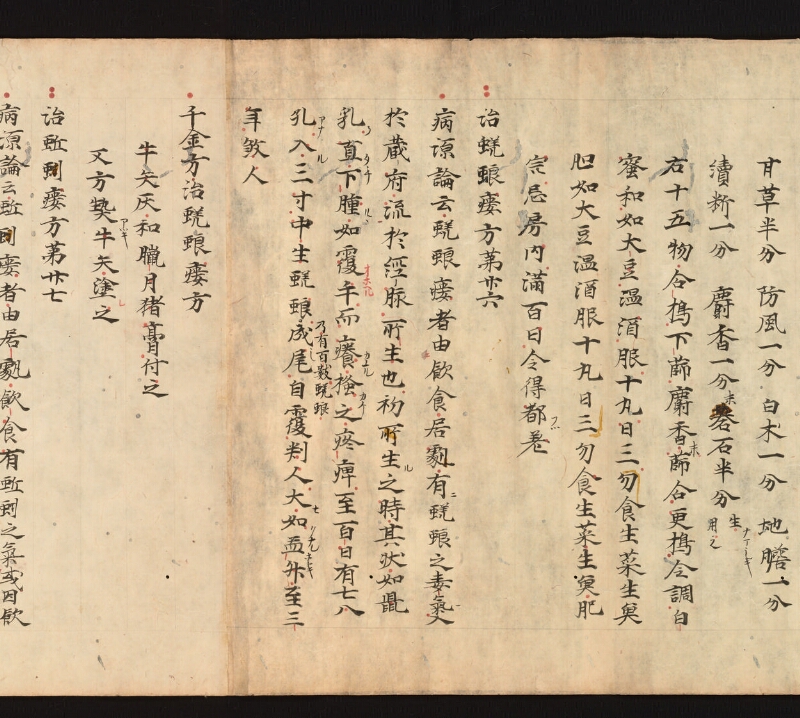 甘草半分 防風一分 白朮一分 地膽一分
續断一分 麝香一分 礜石半分
右十五物合搗下篩麝香篩合更搗令調白
蜜和如大豆温酒服十丸日三勿食生菜生魚
胆如大豆温酒服十丸日三勿食生菜生魚肥
宍忌房内滿百日令得都差
治蜣蜋瘻方第廿六
病源論云蜣蜋瘻者由飲食居處有蜣蜋之毒氣入
於蔵府流於經脉所生也初所生之時其状如鼠
乳直下腫如覆手而癢搔之疼痺至百日有七八
孔入三寸中生蜣蜋成尾自覆判人大如盃升至三
乃有百數蜣蜋
年煞人
千金方治蜣蜋瘻方
牛矢灰和臘月猪膏付之
又方𤍠牛矢塗之
治蚯蚓瘻方第廿七
病源論云蚯蚓瘻者由居處飲食有蚯蚓之氣或因飲